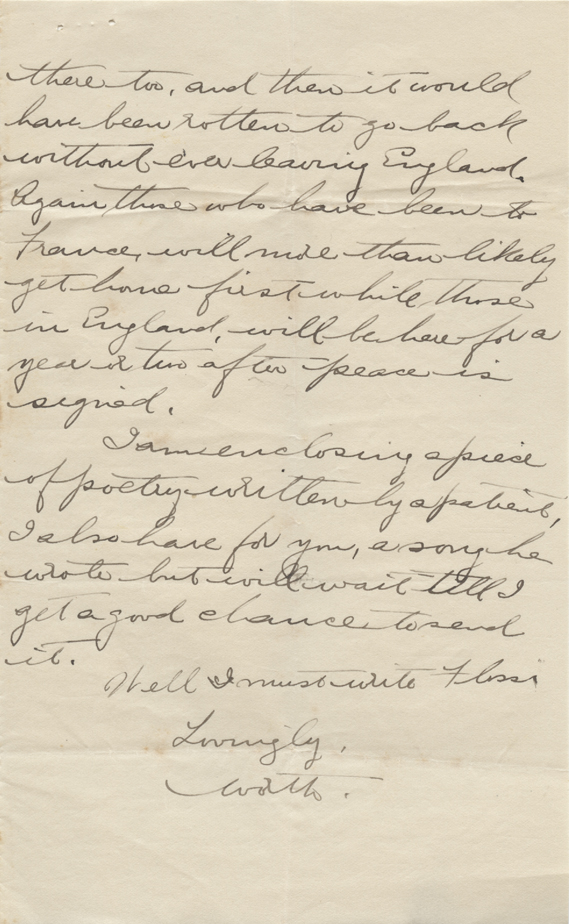 there too, and then it would
have been rotten to go back
without ever leaving England.
Again those who have been to
France, will more than likely
get home first while those
in England, will be here for a
year or two after peace is
signed.
I am enclosing a piece
of poetry written by a patient,
I also have for you, a song he
wrote but will wait till I
get a good chance to send
it.
Well I must write Flossi
Lovingly,
Worth.